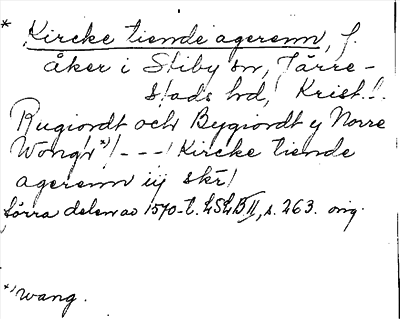 * Kircke tiende agerenn, f.
åker i Stiby sn, Järre-
stads hd, Krist. l.
Rugiordt och Bygiordt y Norre
Wongh *)/ --- / Kircke tiende
agerenn iij skr/
Södra delen av 1570-t. LSLB II, s. 263. orig.
*) wang.